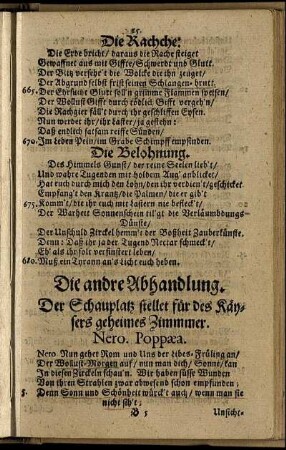 85.
Die Rachche:
Die Erde bricht / daraus die Rache steiget
Gewaffnet aus mit Giffte / Schwerdt und Glutt.
Der Blitz versehr't die Wolcke die ihn zeuget /
Der Abgrund selbst frist seiner Schlangen-brutt.
665. Der Ehrsucht Glutt soll'n grimme Flammen
Der Wollust Gifft durch tödlich Gifft vergeh'n /
Die Rachgier fäll't durch ihr geschliffen Eysen.
Nun werdet ihr / ihr Laster / ja gesteh'n:
Daß endlich fatsam reiffe Sünden /
670. Im beden Pein / im Grabe Schimpff empfinden.
Die Belohnung.
Des Himmels Gunst / der reine Seelen lieb't /
Und wahre Tugenden mit holdem Aug' anblicket /
Hat euch durch mich den Lohn / den ihr verdien't / geschicket
Empfang't den Krantz / die Palmen / die er gib't
675. Komm't / die ihr euch mit Lastern nie befleck't /
Der Warheit Sonnenschein til'gt die Verläumbdungs-
Dünste /
Der Unschuld Zirckel hemm't der Boßheit Zauberkünste.
Denn: Daß ihr ja der Tugend Nectar schmeck't /
Eh' als ihr solt verfinstert leben /
680. Muß ein Tyrann an's Licht euch heben.
Die andre Abhandlung.
Der Schauplatz stellet für des Käy-
sers geheimes Zimmmer.
Nero. Poppæa.
Nero. Nun gehet Rom und Uns der Libes-Früling an /
Der Wollust-Morgen auf / nun man dich / Sonne / kan
In diesen Zirckeln schau'n. Wir haben süsse Wunden
Von ihren Strahlen zwar abwesend schon empfunden;
5. Denn Sonn und Schönheit würck't auch / wenn man sie
nicht sih't;
B 5 Unsicht-